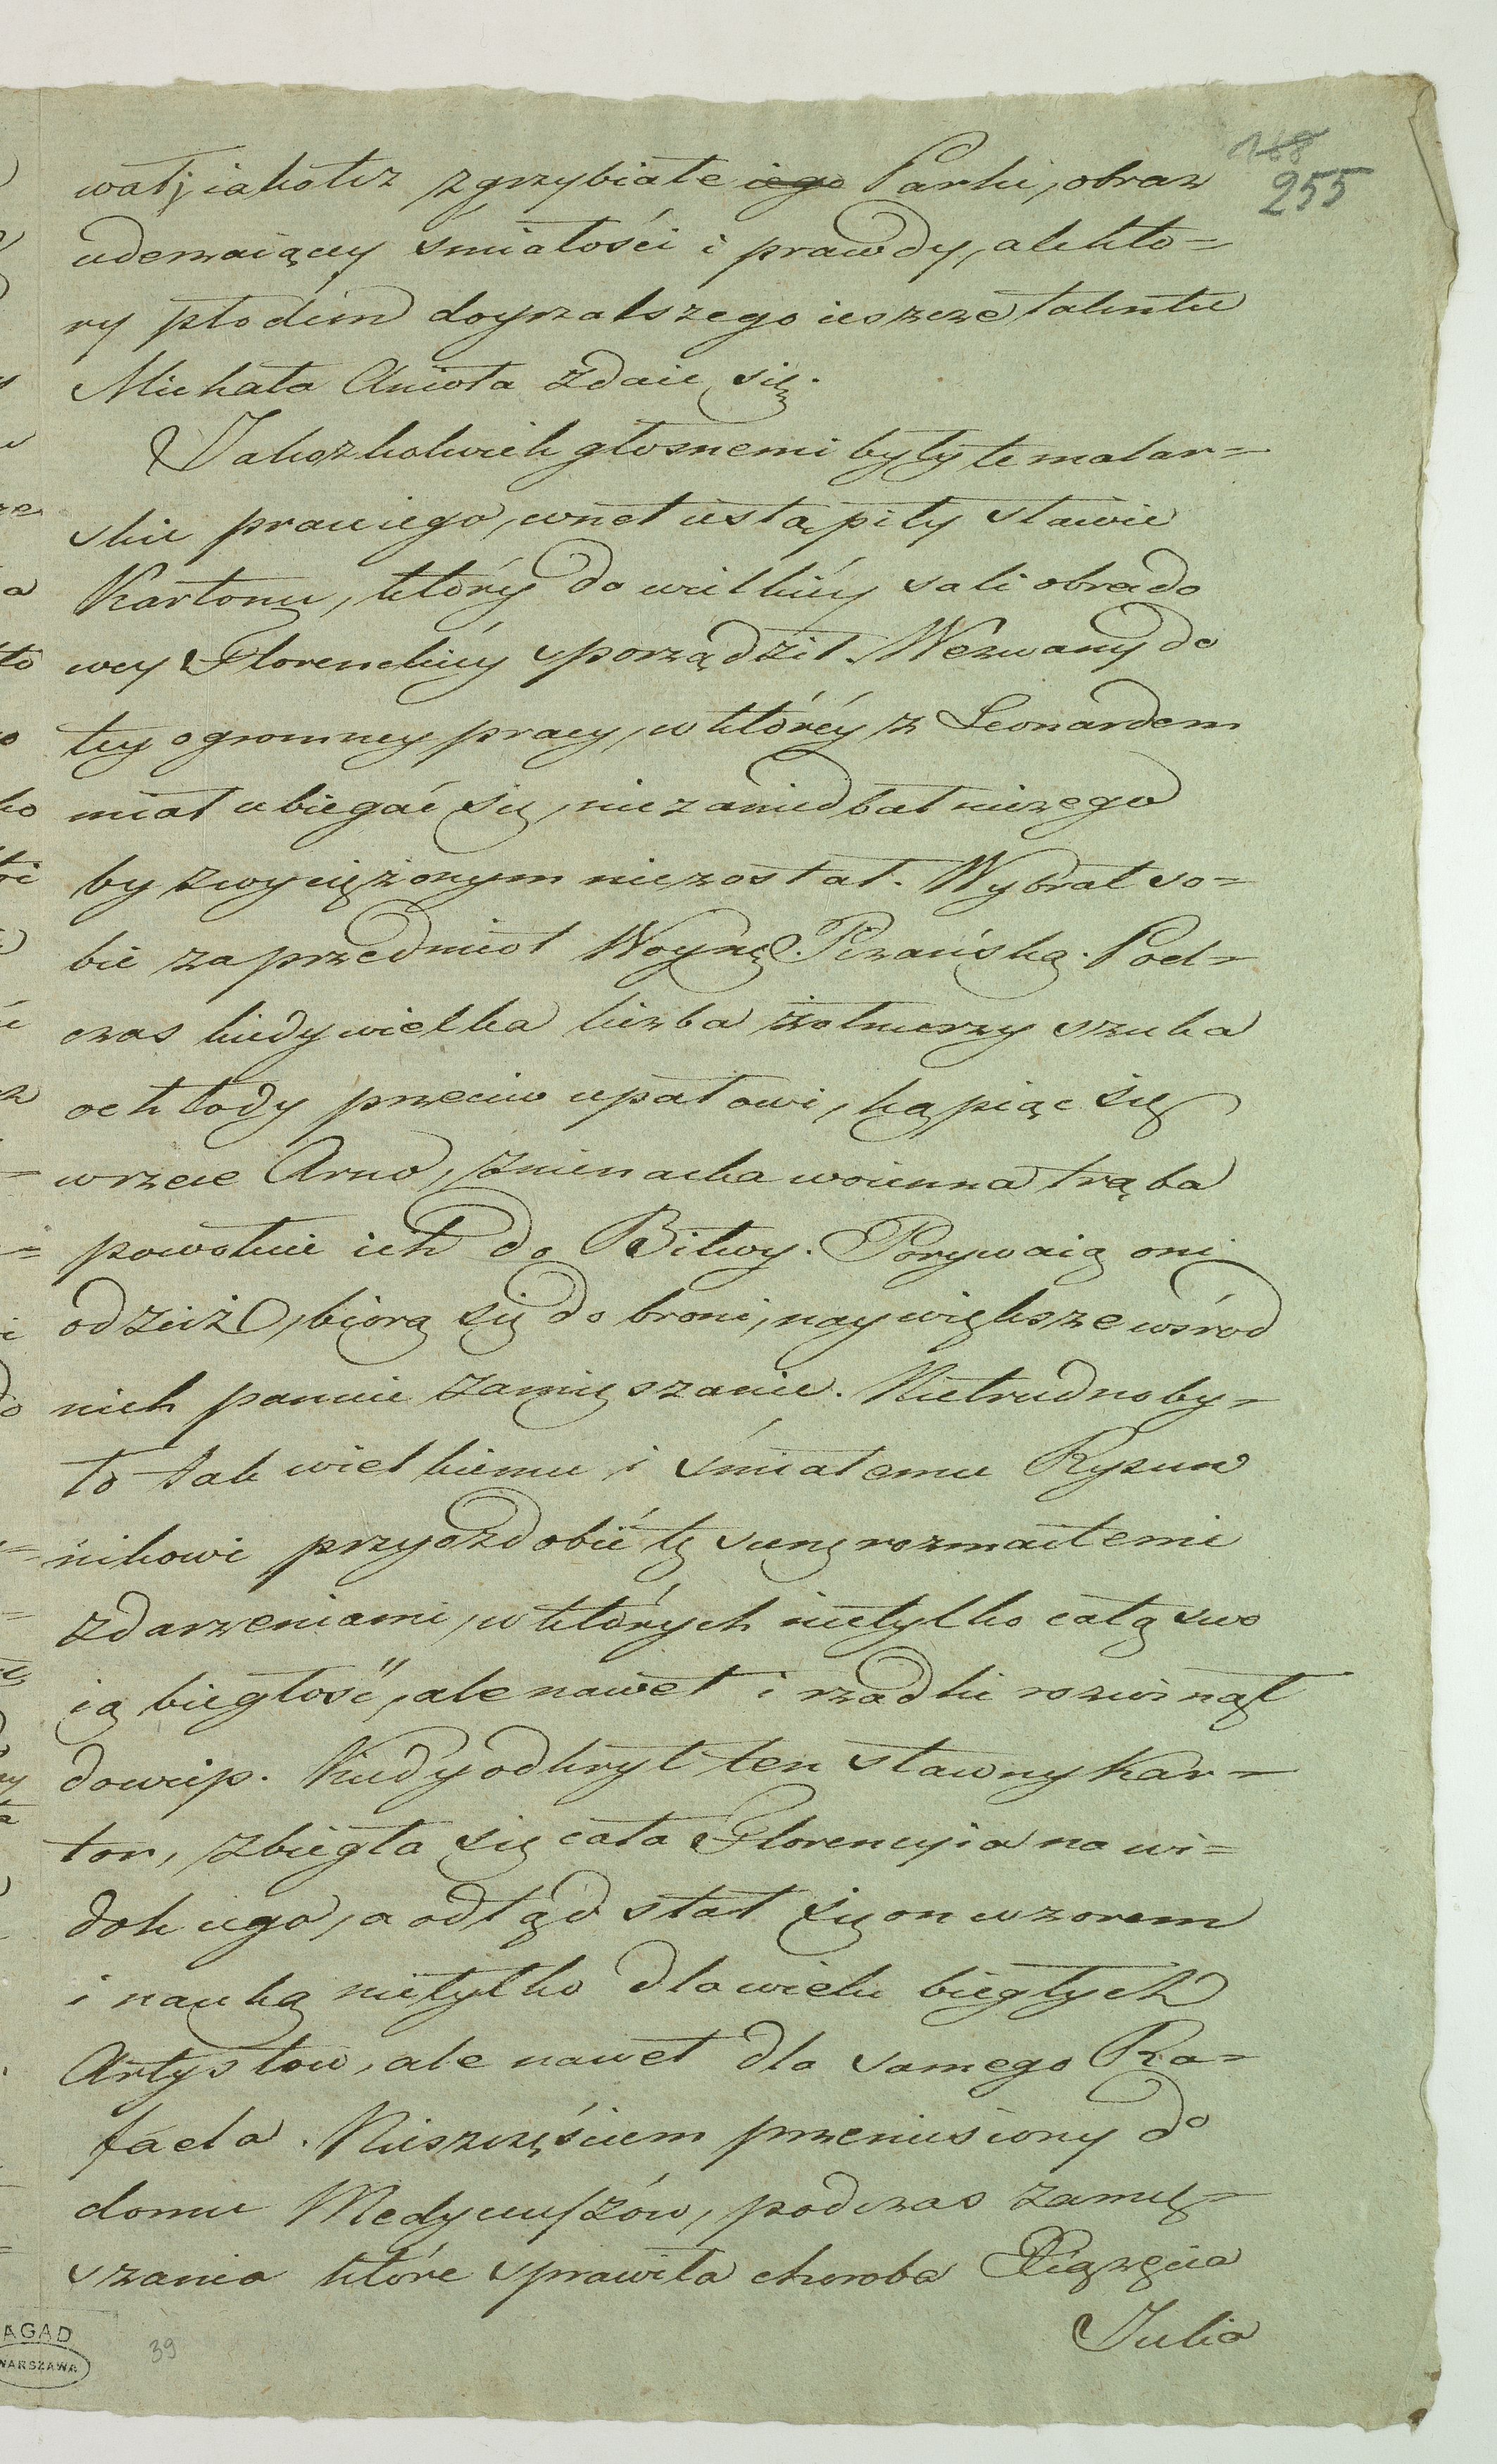 188
255
wał; iakotéz zgrzybiałe iego Parki, obraz
uderzaiący śmiałości i prawdy, a któ=
ry płodem doyrzalszego ieszcze talentu
Michała Anioła zdaie się.
Jakożkolwiek głosnemi były te malar=
skie prace iego, wnet ustąpiły sławie
Kartonu, który do wielkiéy sali obrado
wey Florenckiéy sporządził. Wezwany do
tey ogromney pracy, w któréy z Leonardem
miał ubiegać się, niezaniedbał niczego
by zwyciężonym niezostał. Wybrał so=
bie za przedmiot Woynę Pizańską. Pod=
czas kiedy wielka liczba żołnierzy szuka
ochłody przeciw upałowi, kąpiąc się
w rzece Arno, znienacka woienna trąba
powołuie ich do Bitwy. Porywaią oni
odzież, biorą się do broni, naywiększe wśrod
nich panuie zamięszanie. Nietrudno by=
ło tak wielkiemu i śmiałemu Rysow
nikowi przyozdobić tę scenę rozmaitemi
zdarzeniami, w których nietylko całą swo
ią biegłość, ale nawet i rzadki rozwinął
dowcip. Kiedy odkrył ten sławny kar=
ton, zbiegła się cała Florencyia na wi=
dok iego, a odtąd stał się on wzorem
i nauką nietylko dla wielu biegłych
Artystow, ale nawet dla samego Ra=
faela. Nieszczęściem przeniesiony do
domu Medyceuszów, podczas zamię=
szania które sprawiła choroba Xiążęcia
Julia
AGAD
WARSZAWA
39